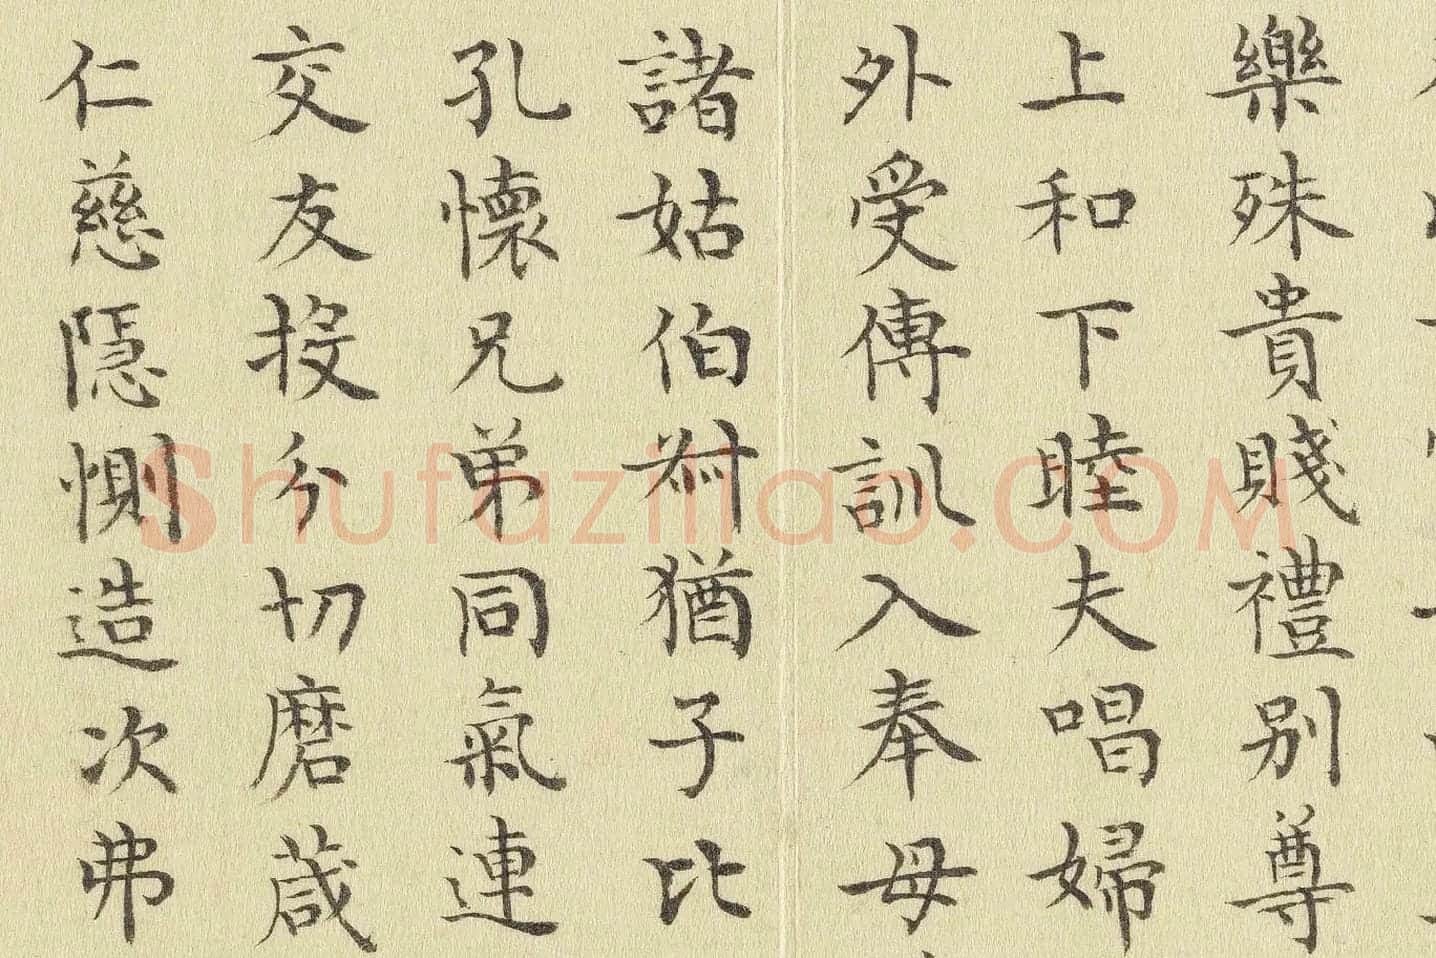 樂殊貴賤禮别尊
上和下睦夫唱婦
外受傅訓入奉母
諸姑伯叔猶子比
孔懷兄弟同氣連
交友投分切磨箴
仁慈隱惻造次弗
Shufaziliao.COM